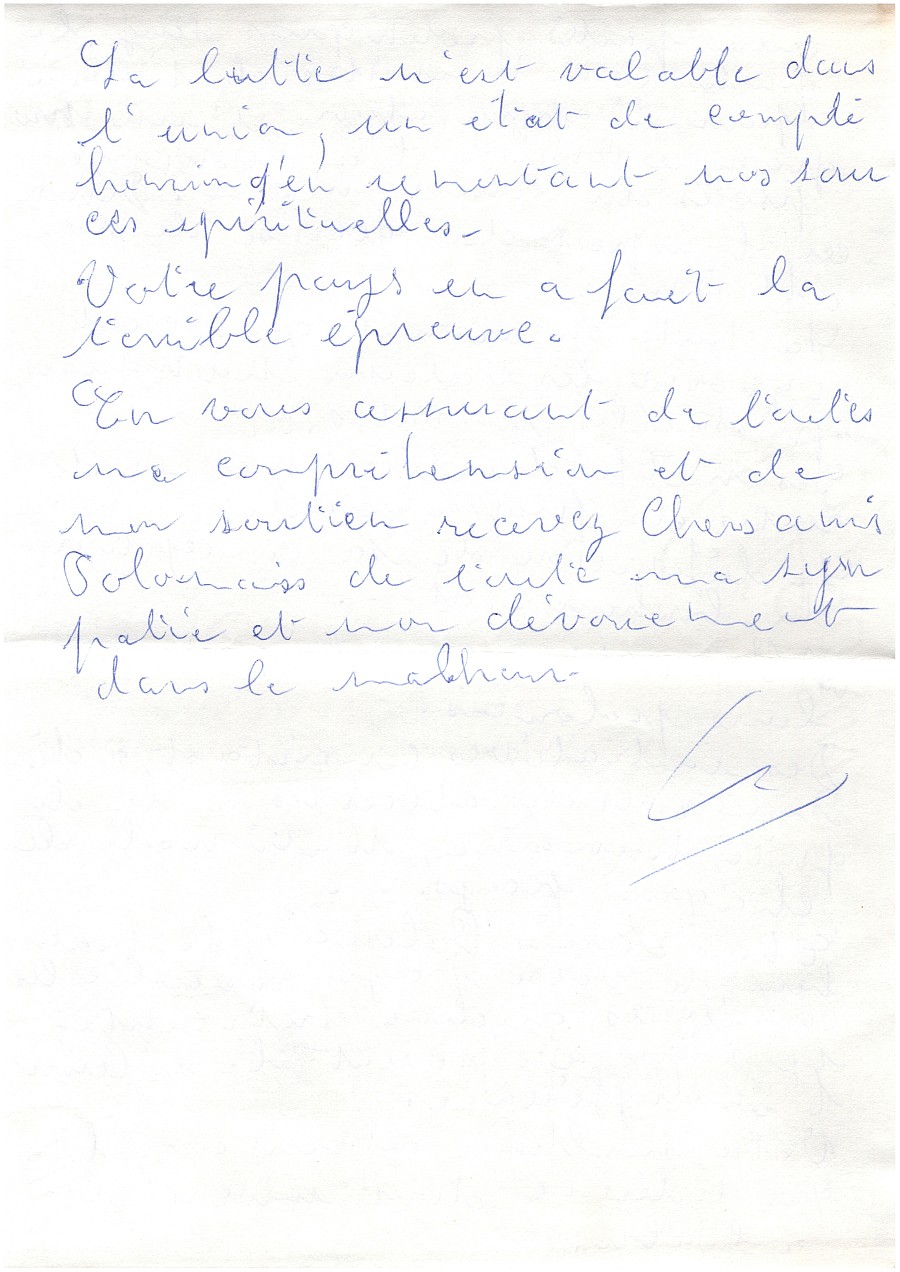 La lutte n'est valable dans
l'union, un état de compré
hension qu'en remontant nos sour
ces spirituelles.
Votre pays en a fait la
terrible épreuve.
En vous assurant de toutes
ma compréhension et de
mon soutien recevez Chers amis
Polonaiss de toute ma sym
patie et mon dévouement
dans le malheur.